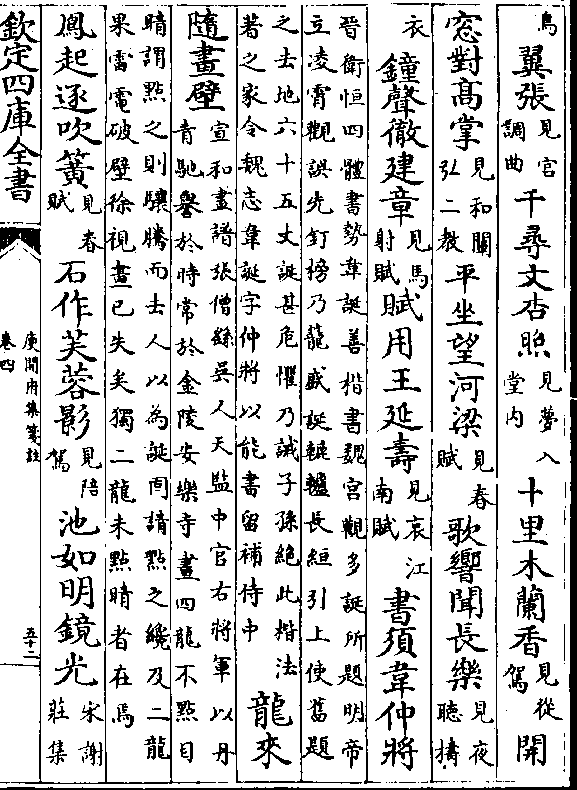 鳥翼張見宮調曲千尋文杏照見夢入堂内十里木蘭香見從駕開
窓對髙掌見和闡弘二教平坐望河梁見春賦歌響聞長樂見夜聽擣
衣鐘聲徹建章見馬射賦賦用王延壽見哀江南賦書須韋仲將
晉衛恒四體書勢韋誕善楷書魏宮觀多誕所題明帝
立凌霄觀誤先釘榜乃籠盛誕轆轤長絙引上使舊題
之去地六十五丈誕甚危懼乃誡子孫絶此楷法
著之家令魏志韋誕字仲將以能書留補侍中
龍來
隨畫壁
宣和畫譜張僧繇吳人天監中官右將軍以丹
青馳譽於時常於金陵安樂寺畫四龍不點目
睛謂點之則驤騰而去人以為誕固請點之纔及二龍
果雷電破壁徐視畫已失矣獨二龍未點睛者在焉
鳳起逐吹簧見春賦石作芙蓉影見陪駕池如明鏡光宋謝莊集
欽定四庫全書
庾開府集箋註
卷四
五十二